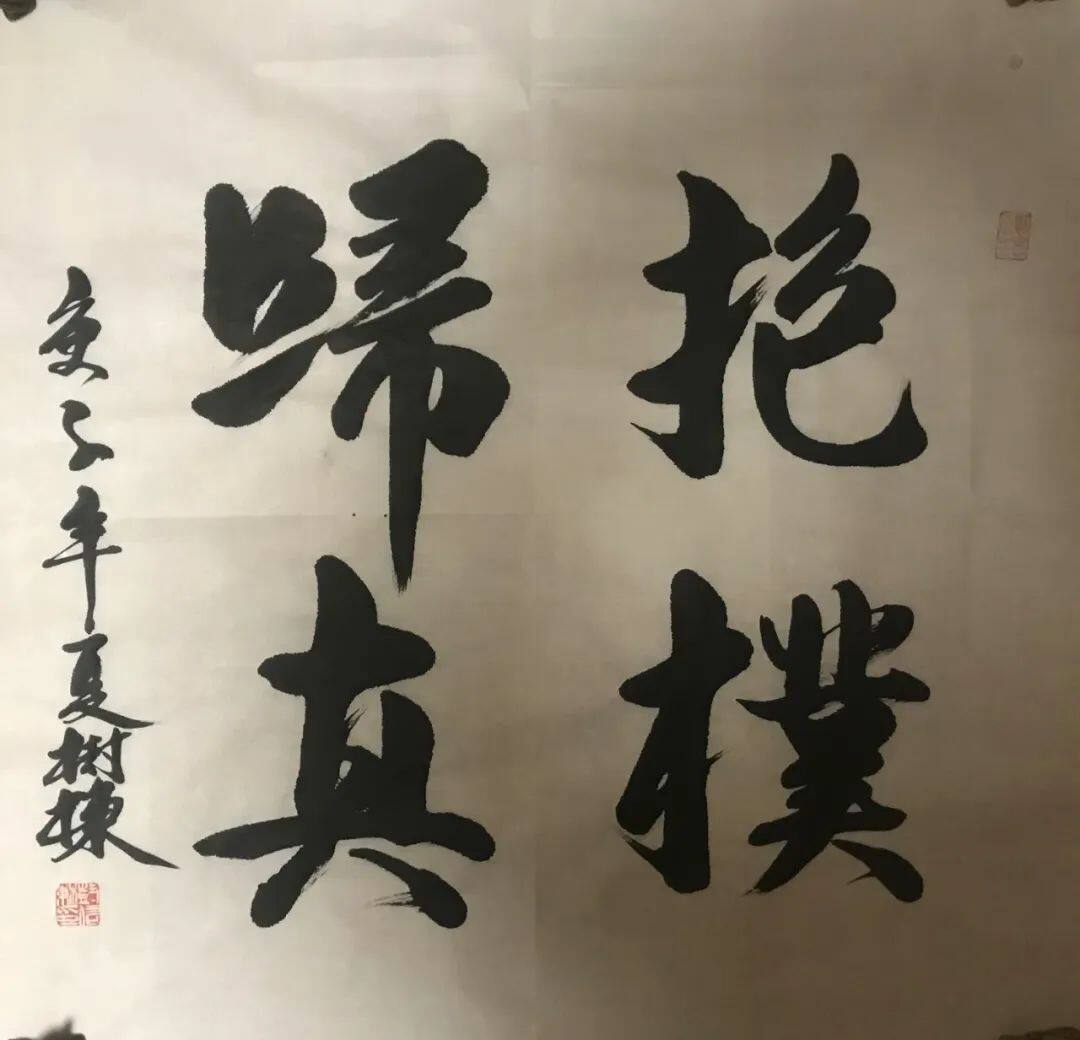 抱樸
歸真
庚子年夏樹棟